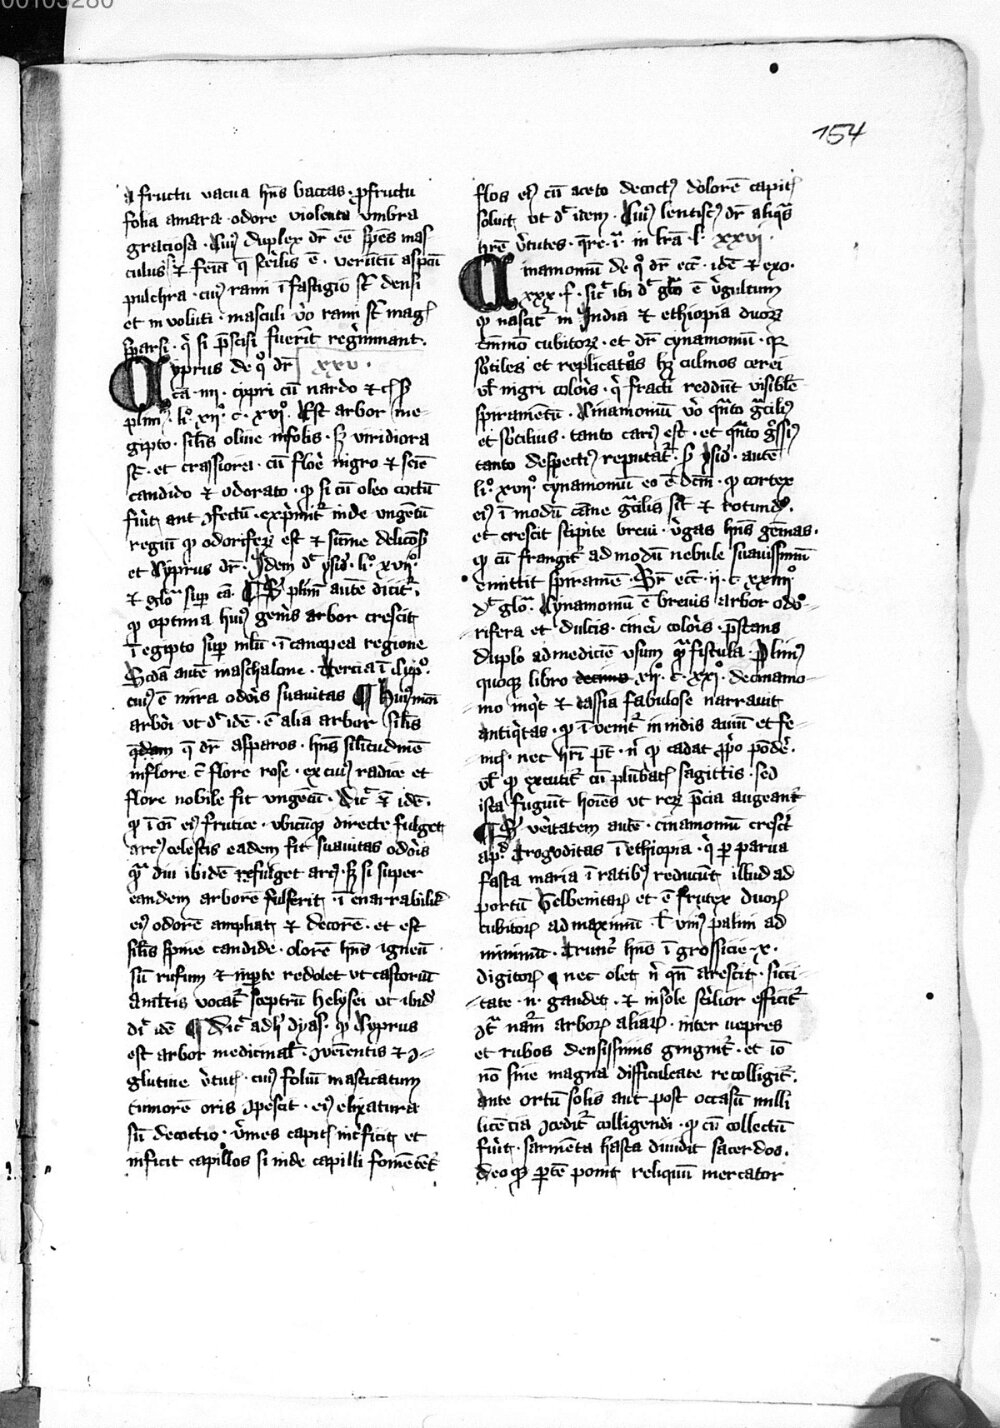 154
a fructu vacua hn̄s baccas · p̱fructu
folia amara · odore violenta vmbra
graciosa · Cuiꝯ duplex dr̄ eē sp̄es mas
culus ⁊ feīa q̄ st̓ilis ē · ver̄tn̄ aspcū
pulchra · cuiꝯ rami ī fastigio st̄ densi
et in voluti · masculi v̓o rami st̄ mag̕
sparsi · q̓ si p̄scisi fuerīt regīminant ·
Cyprus de qͦ dr̄ xxv ·
cā · iiii · cipri cū nardo ⁊ c̄
plinꝯ · liͦ · xiiͦ · c · xviͦ · Est arbor in e-
gipto · sīlis oliue in folis · sꝫ viridiora
st̄ · et crassiora · cū floē nigro ⁊ sēīe
candido ⁊ odorato · qꝫ si cū oleo coctū
fūit aut ꝯfectū · exp̓mit̄ inde vngētū
regiū qꝫ odoriferꝫ est ⁊ sūme
et Cyprus dr̄ · Idem dꝰ ysidꝰ · liͦ · xviiͦ
⁊ gloͣ suꝑ cā · ¶ Sꝫ plinīꝯ aute dicit̄
qꝫ optima huiꝯ gen̄is arbor crescit
ī egipto suꝑ nilū · ī canopea regione
Scdā aute maschalone · Tercia ī Cypͦ ·
cuiꝯ ē mira odōis suauitas ¶ Huiꝯmōi
arbōi vt dꝰ idē · ē alia arbor sīlis
q̄dam q̄ dr̄ asparos · hn̄s sīlitudinē
inflore c̄ flore rose · ex cuiꝯ radice et
flore nobile fit vngētū · Dicͭ idē ·
qꝫ ī oī eiꝯ frutice · vbicūqꝫ directe fulget
arcꝯ celestis eadem fit suauitas odōis
qͣ diu ibidē refulget arcꝯ · sꝫ si super
eandem arborē fulserit · ī enarrabilit̄
eiꝯ odorē ampliat ⁊ decorē · et est
sīlis spine candide · olorē hn̄s igneū
sū rufum ⁊ in ꝑte redolet vt castoriū
A mīltis vocat̄ sceptrū helysei vt ibidꝰ
dꝰ idē ¶ Dicͭ ad h̓ dyasꝰ · qꝫ Cyprus
est arbor medicinaĪ · ꝯueīentis ⁊ ꝯ-
glutiue v̓tutꝭ · cuiꝯ foliū masticatum
tumorē oris ꝯpescit · eiꝯ elixatura
sū decoctio · v̓mes capitꝭ int̓ficit et
inficit capillos si inde capilli fomētet̄
flos eiꝯ cū aceto decoctꝯ dolorē capitꝭ
soluit vt dꝰ idem · Cuiꝯ lentiscꝯ dr̄ aliqͣs
h̓re v̓tutes · q̄re · ī · in lr̄a · l · xxvi ·
Cinamomū de qͦ dr̄ ecͨ · idē ⁊ exo ·
xxx · f · sic̄ ibi dꝰ glōͣ ē v̓gultum
qꝫ nascit̄ in India ⁊ ethiopia duoꝝ
tn̄mō cubitoꝝ · et dr̄ cynamomū · qꝫ
sb̓tiles et replicatos hꝫ culmos cerei
vl̓ nigri colōis · q̓ fracti reddūt visibile
spiramētū · Cinamomū v̓o qn̄to gͣciliꝯ
et sb̓tilius · tanto cariꝯ est · et qn̄to gͦssiꝯ
tanto despectiꝯ reputat̄ · Sꝫ ysidꝰ · aute
liͦ · xviiͦ · cynamomū eo ē dc̄m · qꝫ cortex
eiꝯ ī modū cāne gͣcilis sit ⁊ rotundꝯ ·
et crescit stipite breui · v̓gas hn̄s gēinas ·
qꝫ cū frangit̄ ad modū nebule suauissimū
emittit spiramē · Sr̄ ecͨ · ii · c xxiiiiͦ
dꝰ glōͣ · Cynamomū ē breuis arbor odo-
rifera et dulcis · cineri colōis · p̄stans
duplo ad medicīe vsum qͣ fistula · Pliniꝯ
quoqꝫ libro decimo xiiͦ · c · xxiͦ · decinamo-
mo inq̓t ⁊ cassia fabulose narrauit
antiq̓tas · qꝫ ī venit̄ in nidis auiū et fe-
nicꝭ · nec h̓ri pt̄ · nͥ qꝫ cadat ꝓp̓o pōdē ·
vl̓ qꝫ excutit̄ cū plūbatꝭ sagittis · sed
ista fugiūt hoīes vt reꝝ p̄cia augeant̄
¶ Sꝫ veritatem aute · cinamomū cresc̄it
apꝰ Trogoditas ī ethiopia · q̓ ꝑ parua
fasta maria ī ratibꝯ reducūt illud ad
portū Gelbenitaꝝ et ē frutex duoꝝ
cubitoꝝ ad maximū · l̓ vniꝯ palmi ad
minimū · Trunc̄ hn̄s ī grossicie · x ·
digitoꝝ nec olet nͥ qn̄ arescit · sicci-
-tate · n · gaudet · ⁊ in sole st̓ilior efficit̄
ꝯtͣ nām arboꝝ aliaꝝ · inter vepres
et rubos densissimis gingnit̄ · et iō
nō sine magna difficultate recolligit̄ ·
Ante ortū solis aut post occasū nulli
licētia ꝯcedit̄ colligendi · qꝫ cū collectū
fūit · sarmēta hasta diuidit sacerdos ·
deoqꝫ ꝑtē ponit reliquū mercator